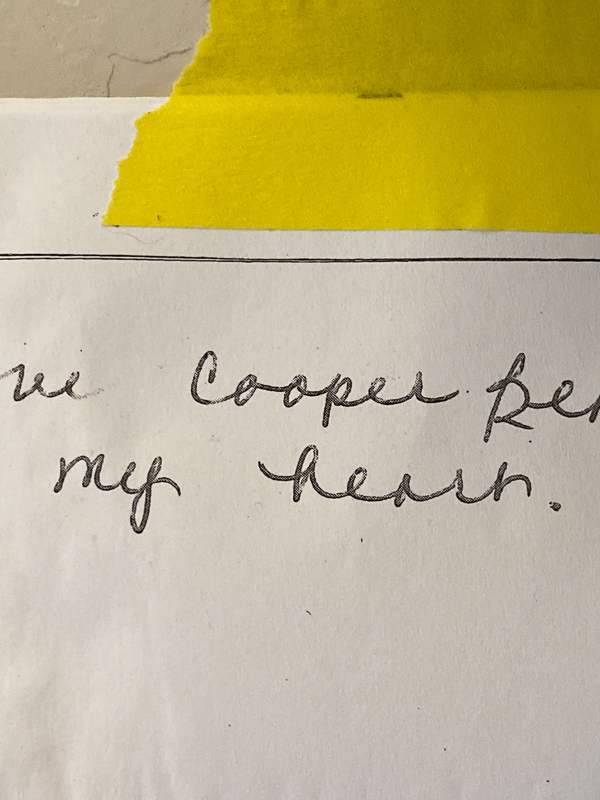 ve Cooper Ber
my heart.